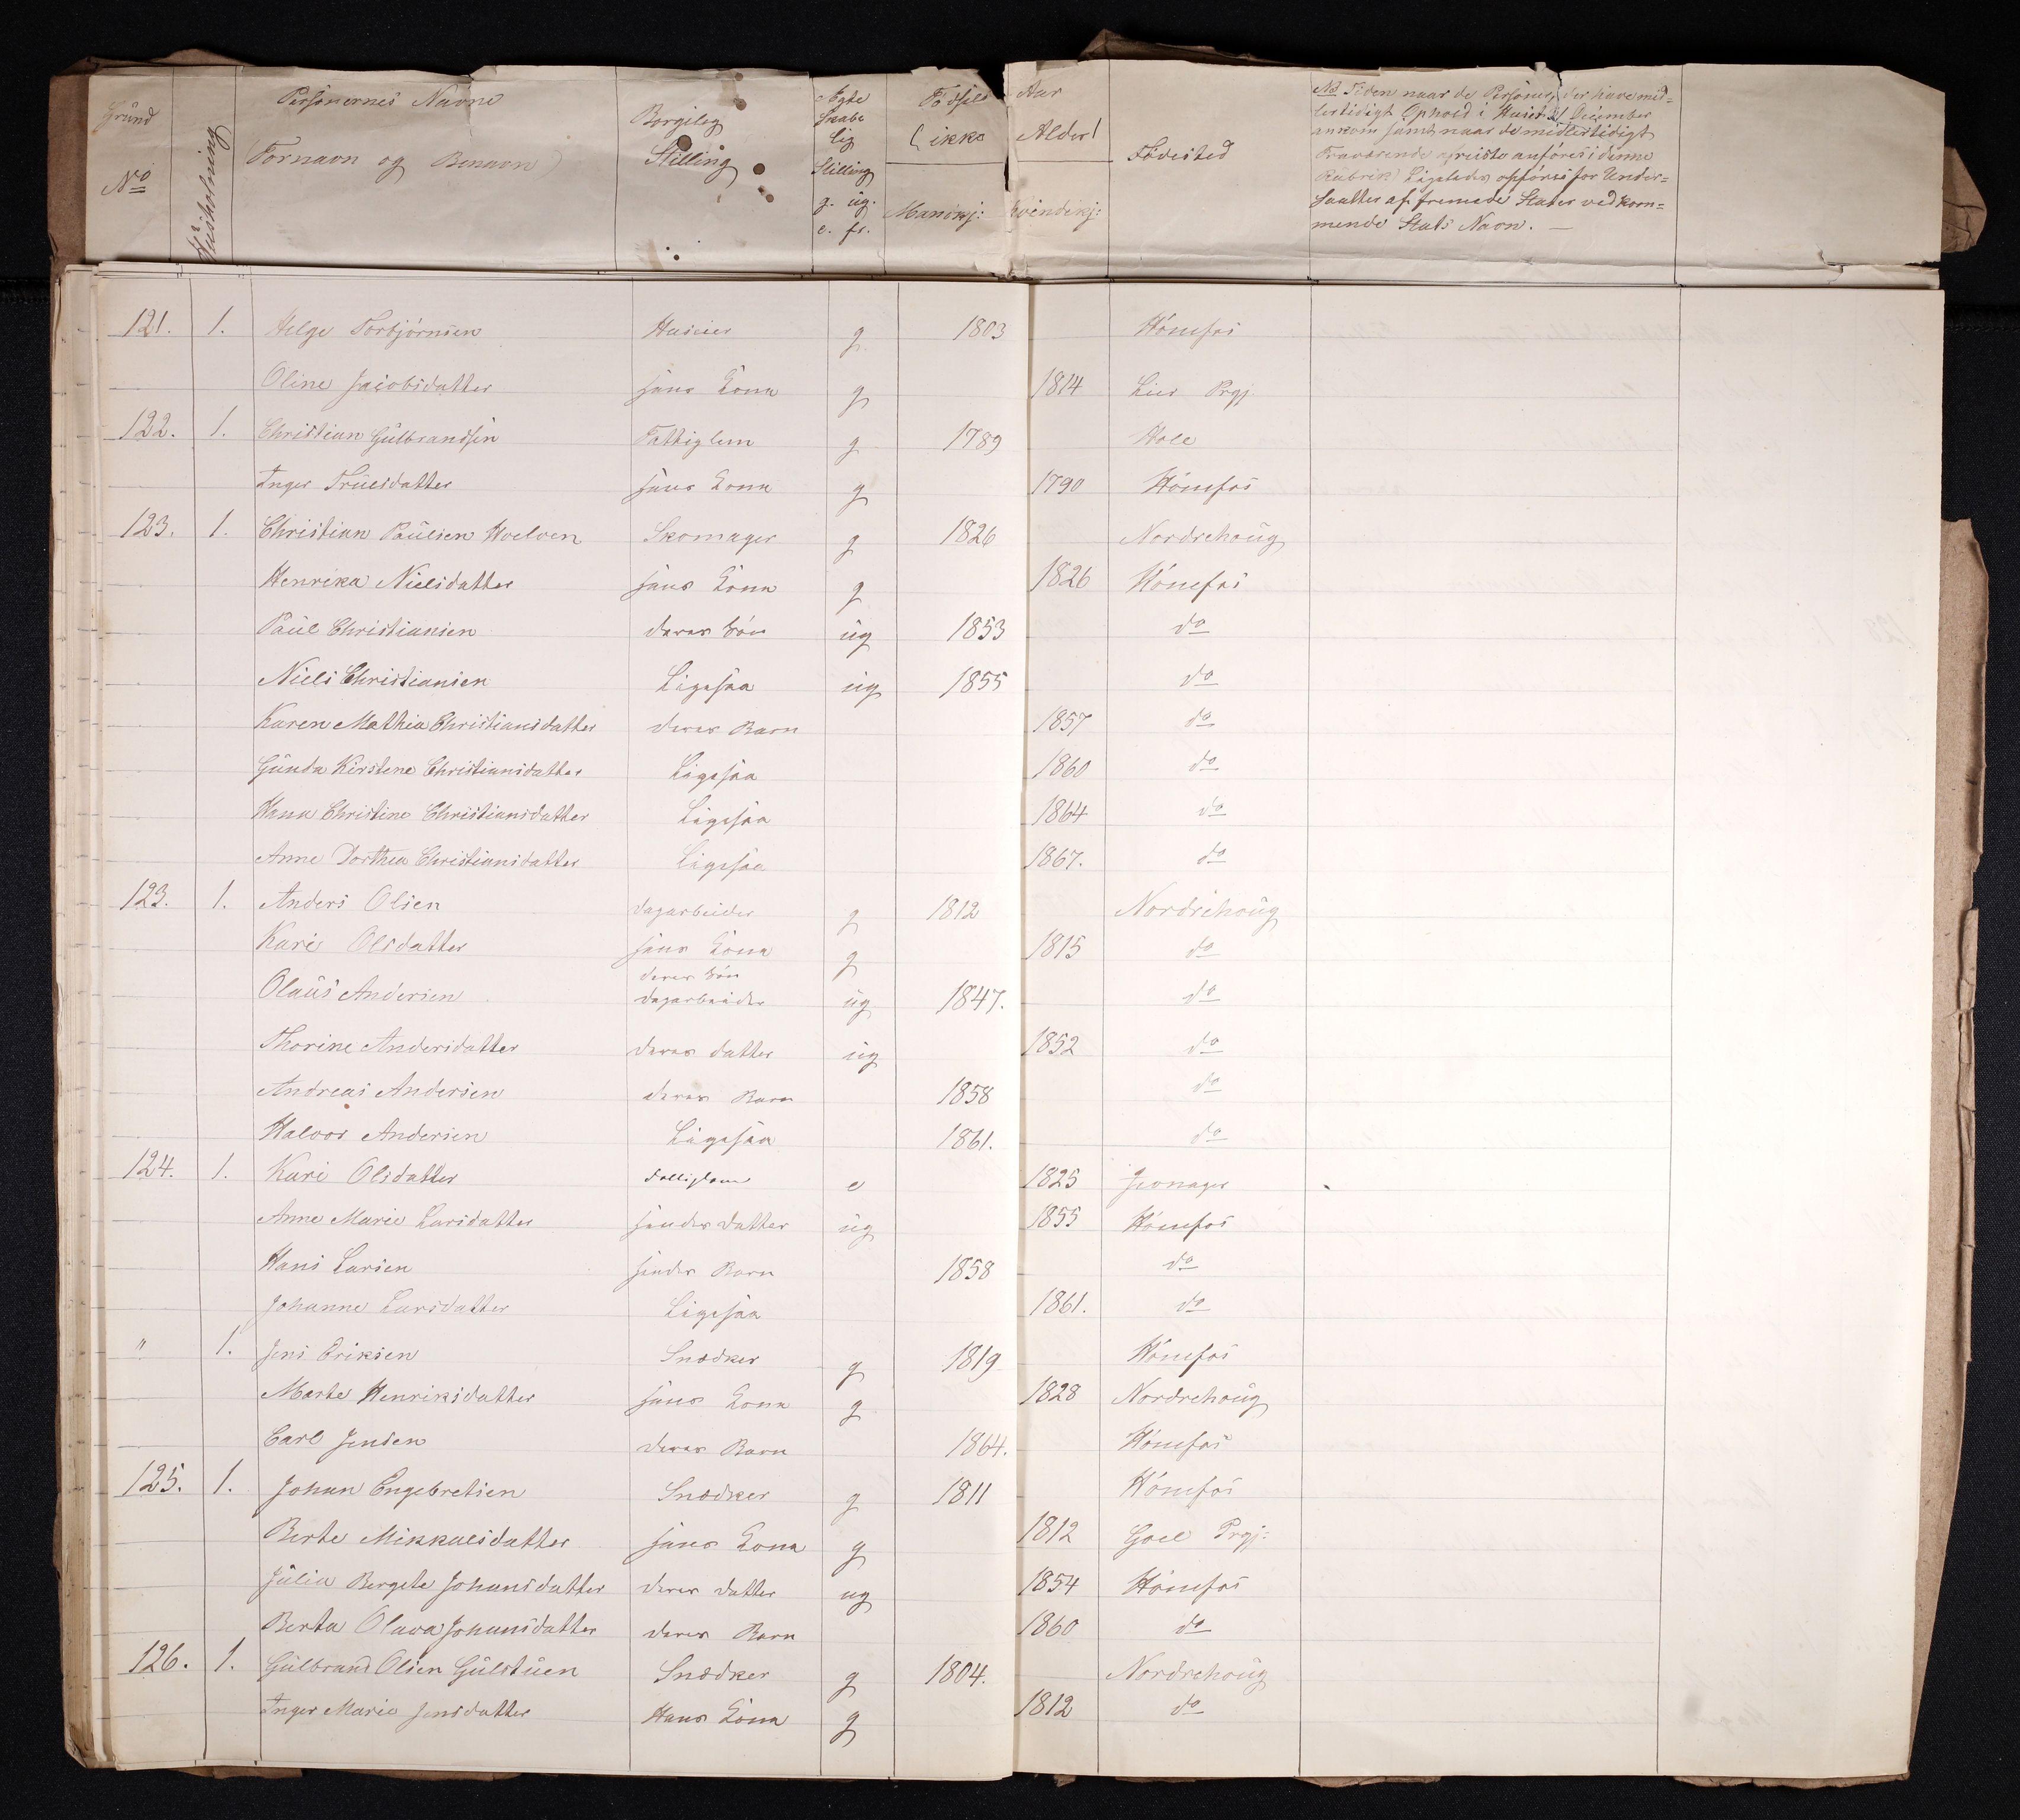 Grund
No
Husholning
Personernes Navne
(Fornavn og Benavn)
Borgerlig
Stilling
Ægte
skabe
lig
Stilling
g. ug.
e. fr.
Fødsels Aar
(ikke Alder)
Mandkj: Kvindekj:
Fødested
NB Tiden naar de Personer, der have mid=
lertidigt Ophold i Huset 31 December
ankom samt naar de midlertidigt
Fraværende afreiste anføres i denne
Rubrik. Ligeledes opføres for Under=
saatter af fremede Stater vedkom=
mende Stats Navn. —
121. 1. Helge Torbjørnsen Huseier g 1803 Hønefos
Oline Jacobsdatter hans Kona g 1814 Lier Prgj.
122. 1. Christian Gulbrandsen Fattiglem g 1789 Hole
Inger Truesdatter hans Kona g 1790 Hønefos
123. 1. Christian Paulsen Hvelven Skomager g 1826 Nordrehoug
Henrika Nielsdatter hans Kona g 1826 Hønefos
Paul Christiansen deres Søn ug 1853 do
Niels Christiansen Ligesaa ug 1855 do
Karen Mathia Christiansdatter deres Barn 1857 do
Gunda Kirstene Christiansdatter Ligesaa 1860 do
Hana Christine Christiansdatter Ligesaa 1864 do
Anne Dorthea Christiansdatter Ligesaa 1867. do
123. 1. Anders Olsen dagarbeider g 1812 Nordrehoug
Kari Olsdatter hans Kona g 1815 do
Olaus Andersen deres Søn dagarbeider ug 1847. do
Thorine Andersdatter deres datter ug 1852 do
Andreas Andersen deres Barn 1858 do
Halvor Andersen Ligesaa 1861. do
124. 1. Kari Olsdatter Fattiglem e 1825 Jevnager
Anne Marie Larsdatter hendes datter ug 1855 Hønefos
Hans Larsen hendes Barn 1858 do
Johanne Larsdatter Ligesaa 1861. do
" 1. Jens Eriksen Snedker g 1819 Hønefos
Marte Henriksdatter hans Kona g 1828 Nordrehoug
Carl Jensen deres Barn 1864. Hønefos
125. 1. Johan Engebretsen Snedker g 1811 Hønefos
Berte Mikkaelsdatter hans Kona g 1812 Goel Prgj:
Julia Bergete Johansdatter deres datter ug 1854 Hønefos
Berta Olava Johansdatter deres Barn 1860 do
126. 1. Gulbrand Olsen Gulstuen Snedker g 1804. Nordrehoug
Inger Marie Jensdatter Hans Kona g 1812 do